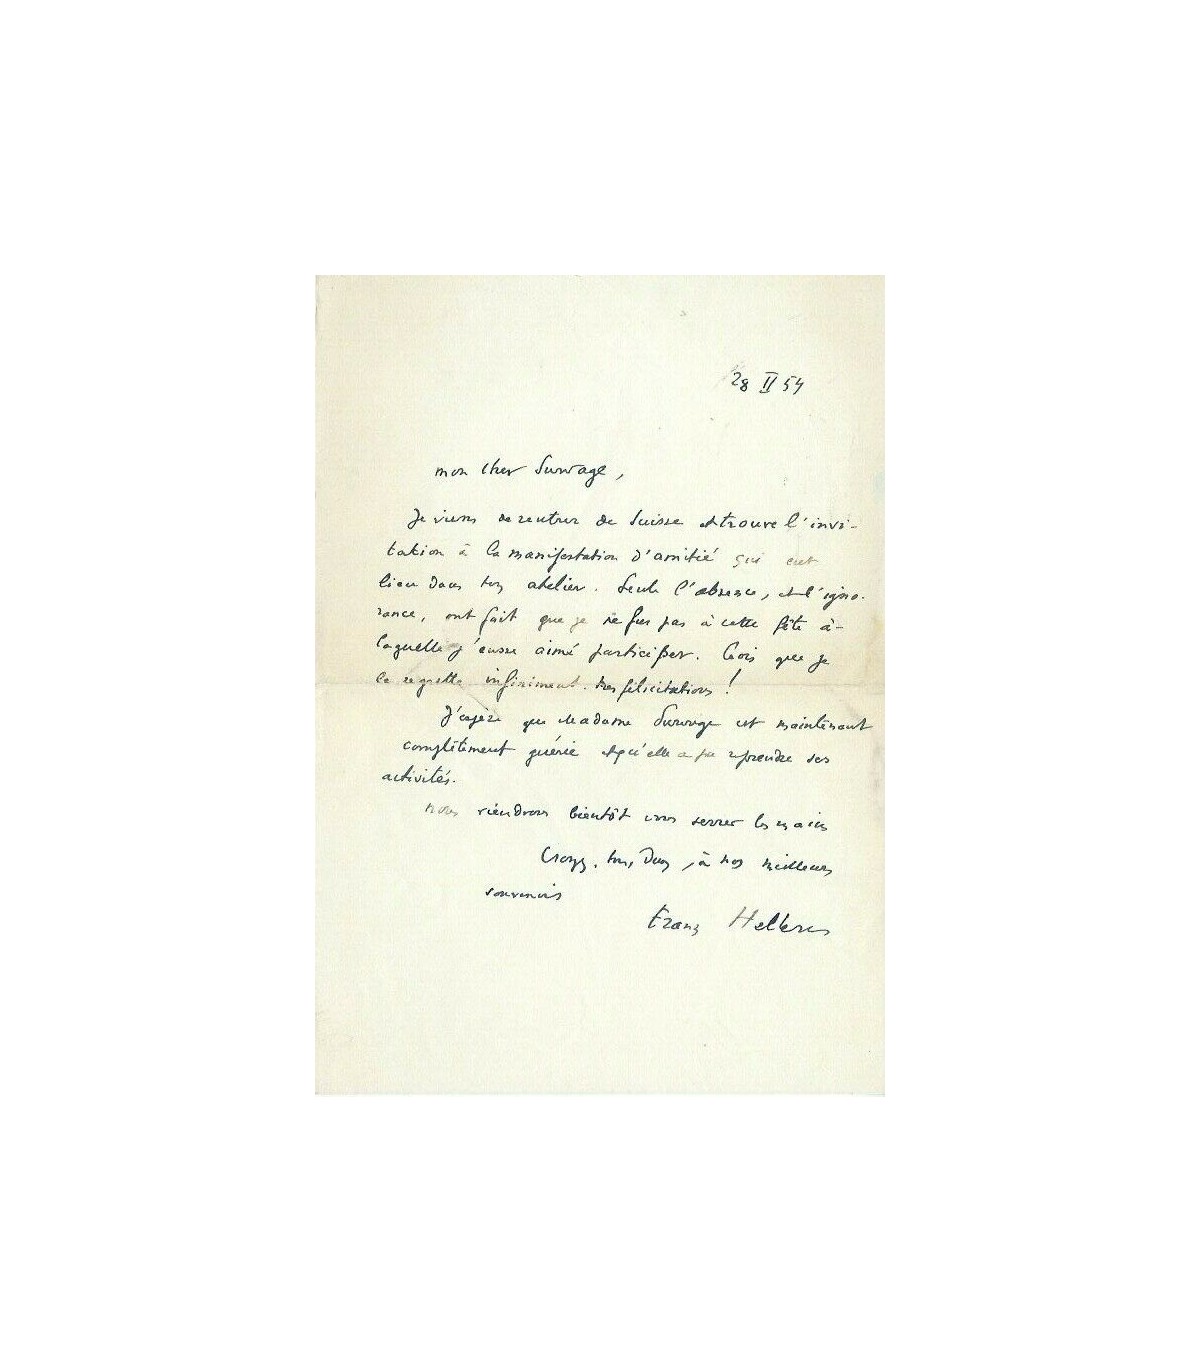 28 II 54
mon cher Survage,
Je viens de rentrer de Suisse et trouve l'invi-
tation à la manifestation d'amitié qui eut
lieu dans ton atelier. Seule l'absence, et l'igno-
rance, ont fait que je ne fus pas à cette fête à-
laquelle j'eusse aimé participer. Crois que je
le regrette infiniment. Mes félicitations!
J'espère que Madame Survage est maintenant
complètement guérie et qu'elle a pu reprendre ses
activités.
Nous viendrons bientôt vous serrer les mains
Croyez, tous deux, à nos meilleurs
souvenirs
Franz Hellens